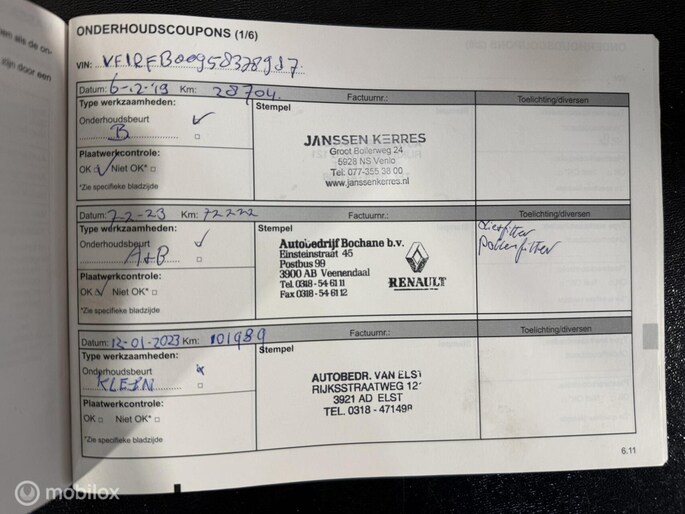 en als de on-
zijn door een
ONDERHOUDSCOUPONS (1/6)
VIN: VF1RFB00958378987
Datum: 6-12-'19 Km: 28704 Factuurnr.: Toelichting/diversen
Type werkzaamheden: Stempel
Onderhoudsbeurt
B
JANSSEN KERRES
Groot Bollerweg 24
5928 NS Venlo
Tel: 077-355 38 00
www.janssenkerres.nl
Plaatwerkcontrole:
OK Niet OK*
*Zie specifieke bladzijde
Datum: 7-2-23 Km: 72222 Factuurnr.: Toelichting/diversen
Type werkzaamheden: Stempel
Onderhoudsbeurt
A+B
Autobedrijf Bochane b.v.
Einsteinstraat 45
Postbus 99
3900 AB Veenendaal
Tel. 0318-54 61 11
Fax 0318-54 61 12
RENAULT
Pollenfilter
Plaatwerkcontrole:
OK Niet OK*
*Zie specifieke bladzijde
Datum: 12-01-2023 Km: 101989 Factuurnr.: Toelichting/diversen
Type werkzaamheden: Stempel
Onderhoudsbeurt
KLEIN
AUTOBEDR. VAN ELST
RIJKSSTRAATWEG 12
3921 AD ELST
TEL. 0318 - 471498
Plaatwerkcontrole:
OK Niet OK*
*Zie specifieke bladzijde
6.11
mobilox